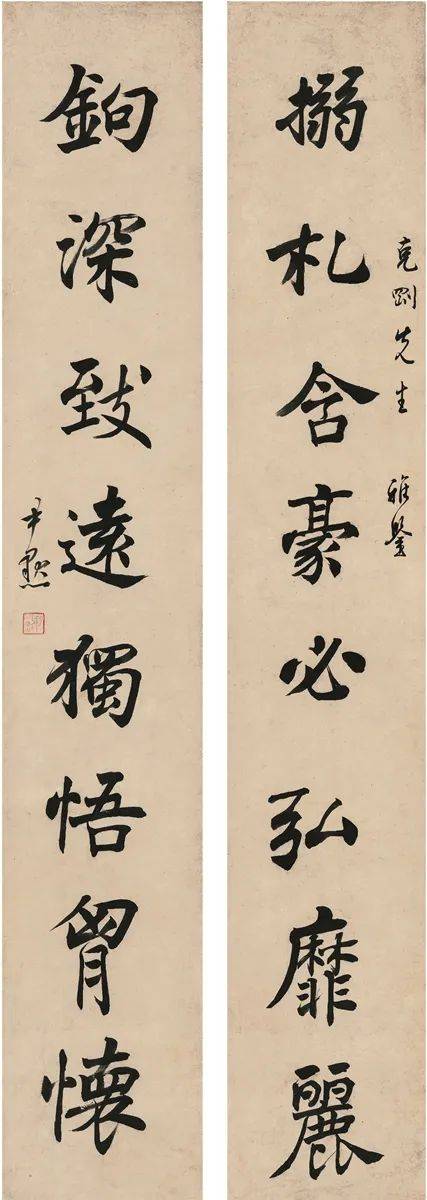 克剛先生 雅鑒
搦札含豪必弘靡麗
鉤深致遠獨悟胷懷
尹默